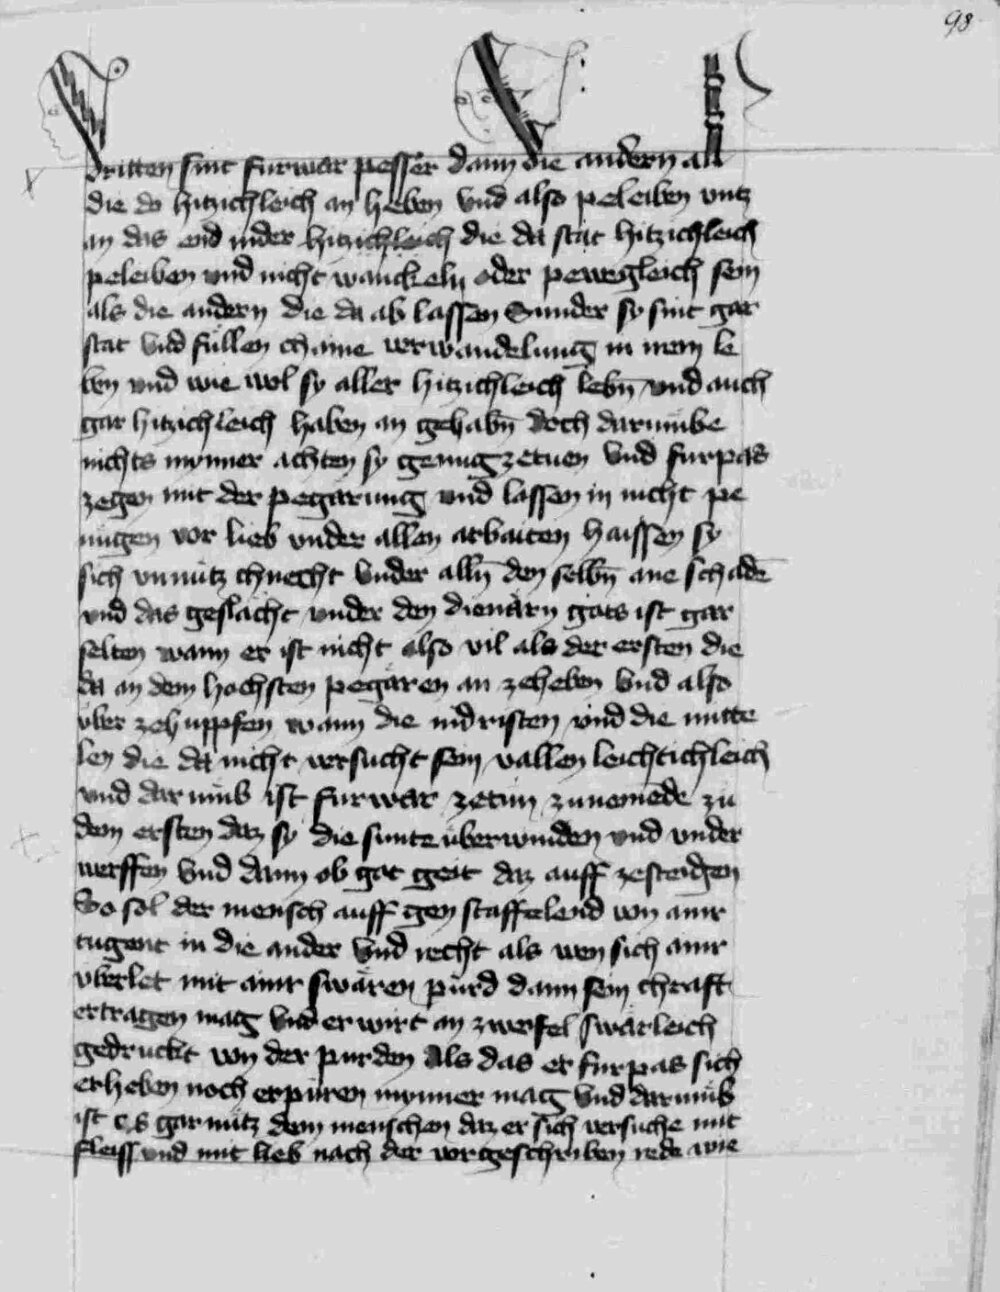 98
dritten sint furwar pesser dann die andern all
die do hitzichleich an heben vnd also peleiben vntz
an das end inder hitzichleich die da stat hitzichleich
peleiben vnd nicht wanckeln oder pewegleich sein
als die andern die da ab lassen Sunder sy sint gar
stat vnd fullen chaine verwandelung in irem le
ben vnd wie wol sy aller hitzichleich lebn̄ vnd auch
gar hitzichleich haben an gehabn̄ doch darumbe
nichts mynner achten sy genug zetuen vnd furpas
zegen mit der pegarung vnd lassen in nicht pe
nugen vor lieb vnder allen arbaiten haissen sy
sich vnnutz chnecht vnder alln̄ den selbn̄ ane schadē
vnd das geslächt vnder den dienarn gots ist gar
selten wann er ist nicht also vil als der ersten die
da an dem hochsten pegaren an zeheben vnd also
vber zehuppfen wann die nidristen vnd die mitte
len die da nicht versucht sein vallen leichtichleich
vnd dar umb ist furwar zetun zunemēde zu
dem ersten daz sy die sunte uberwinden vnd vnder
werffen vnd dann ob got geit daz auff zesteigen
So sol der mensch auff gen staffelend von ainr
tugent in die ander vnd recht als wen sich ainr
vberlet mit ainr swären purd dann sein chraft
ertragen mag vnd er wirt an zweifel swärleich
gedruckt von der purden Als das er furpas sich
erheben noch erpüren mynner mag vnd darumb
ist es gar nutz dem menschen daz er sich versuche mit
fleiss vnd mit lieb nach der vorgeschriben rede wie